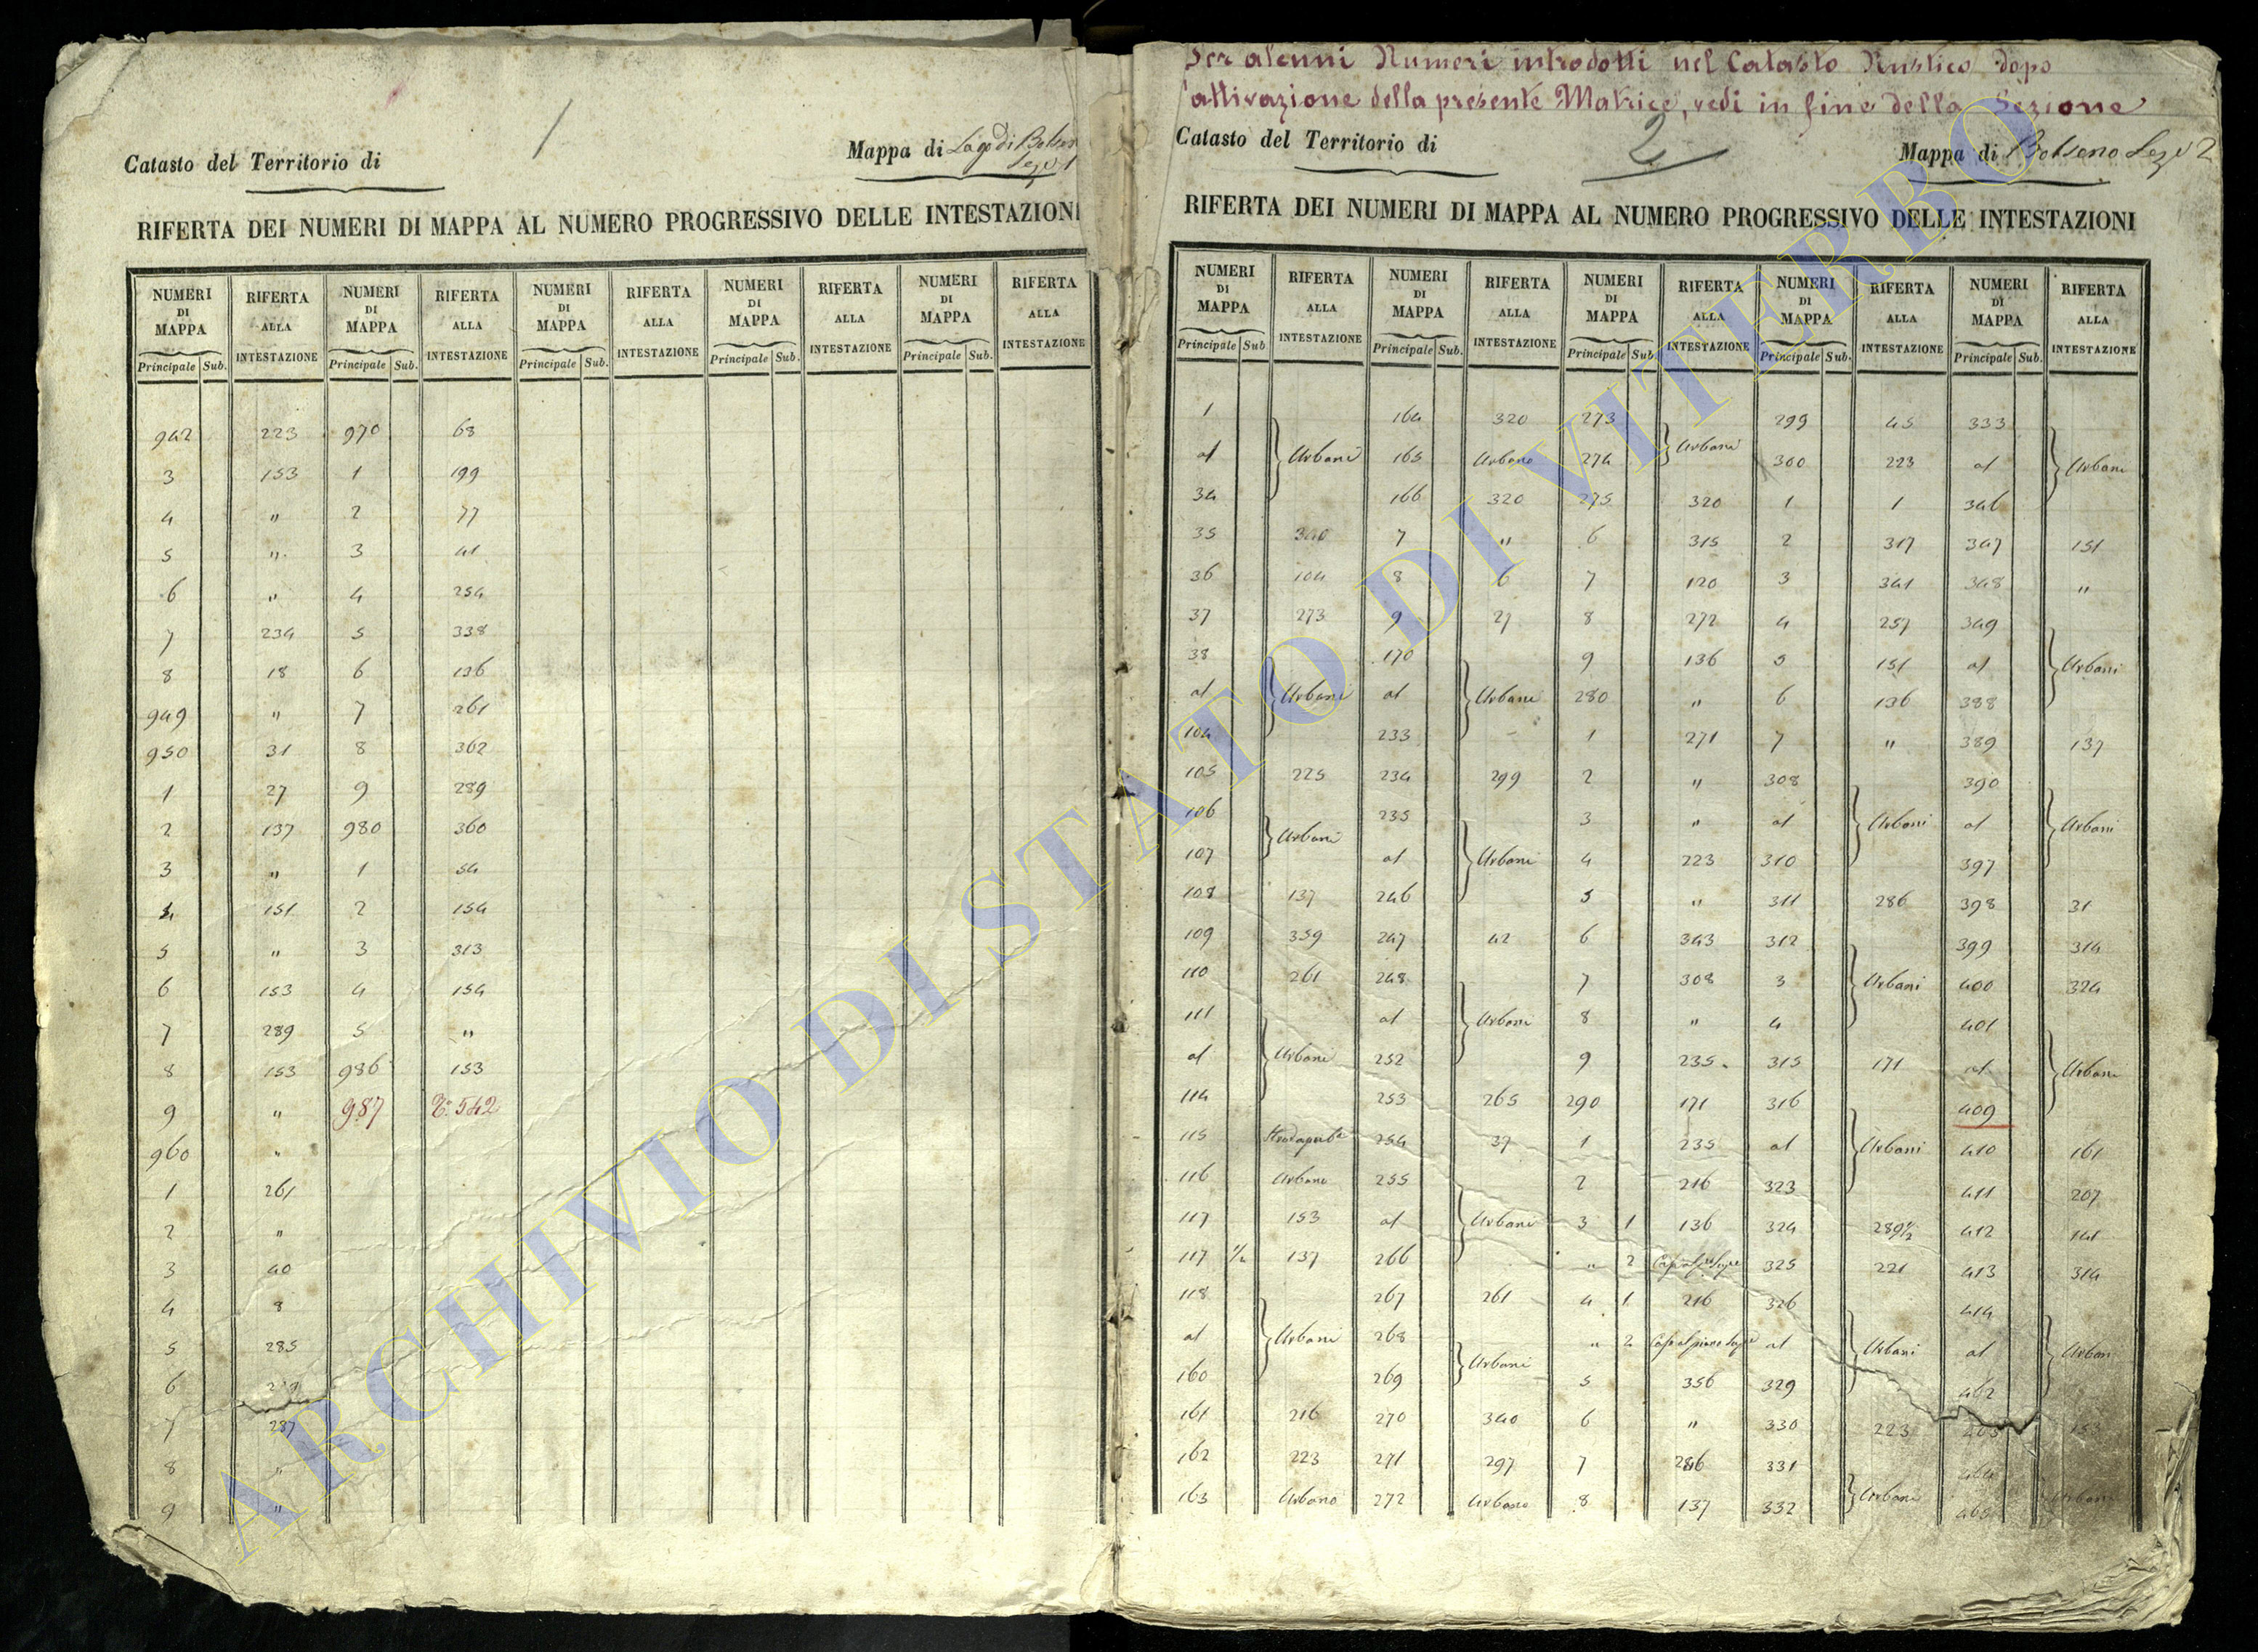 Catasto del Territorio di
1
Mappa di Lago di Bolsen
Sez. 1
RIFERTA DEI NUMERI DI MAPPA AL NUMERO PROGRESSIVO DELLE INTESTAZIONI
NUMERI DI MAPPA RIFERTA ALLA INTESTAZIONE NUMERI DI MAPPA RIFERTA ALLA INTESTAZIONE NUMERI DI MAPPA RIFERTA ALLA INTESTAZIONE NUMERI DI MAPPA RIFERTA ALLA INTESTAZIONE NUMERI DI MAPPA RIFERTA ALLA INTESTAZIONE
Principale Sub. Principale Sub. Principale Sub. Principale Sub. Principale Sub.
942 223 970 68
3 153 1 199
4 " 2 77
5 " 3 41
6 " 4 254
7 234 5 338
8 18 6 136
949 " 7 261
950 31 8 362
1 27 9 289
2 137 980 360
3 " 1 54
4 151 2 154
5 " 3 313
6 153 4 154
7 289 5 "
8 153 986 153
9 " 987 542
960 "
1 261
2 "
3 40
4 8
5 285
6
7 287
8 "
9 "
Per alcuni Numeri introdotti nel Catasto Rustico dopo
l'attivazione della presente Matrice, vedi in fine della Sezione
Catasto del Territorio di
2
Mappa di Bolseno Sez. 2
RIFERTA DEI NUMERI DI MAPPA AL NUMERO PROGRESSIVO DELLE INTESTAZIONI
NUMERI DI MAPPA RIFERTA ALLA INTESTAZIONE NUMERI DI MAPPA RIFERTA ALLA INTESTAZIONE NUMERI DI MAPPA RIFERTA ALLA INTESTAZIONE NUMERI DI MAPPA RIFERTA ALLA INTESTAZIONE NUMERI DI MAPPA RIFERTA ALLA INTESTAZIONE
Principale Sub Principale Sub. Principale Sub Principale Sub. Principale Sub.
1 164 320 273 299 45 333
al Urbani 165 Urbano 274 Urbani 300 223 al Urbani
34 166 320 275 320 1 1 346
35 340 7 " 6 315 2 317 347 151
36 104 8 6 7 120 3 341 348 "
37 273 9 27 8 272 4 257 349
38 170 9 136 5 151 al Urbani
al Urbani al Urbani 280 " 6 136 388
104 233 1 271 7 " 389 137
105 225 234 299 2 " 308 390
106 Urbani 235 3 " al Urbani al Urbani
107 al Urbani 4 223 310 397
108 137 246 5 " 311 286 398 31
109 359 247 42 6 343 312 399 314
110 261 248 7 308 3 Urbani 400 324
111 al Urbani 8 " 4 401
al Urbani 252 9 235 315 171 al Urbani
114 253 265 290 171 316 409
115 254 37 1 235 al Urbani 410 161
116 Urbano 255 2 216 323 411 207
117 153 al Urbani 3 1 136 324 289 1/2 412 141
117 1/2 137 266 " 2 325 221 413 314
118 267 261 4 1 216 326 414
al Urbani 268 Urbani " 2 al Urbani al Urbani
160 269 5 356 329 462
161 216 270 340 6 " 330 223 463 153
162 223 271 297 7 286 331 Urbani 464
163 Urbano 272 Urbano 8 137 332 465 Urbani
ARCHIVIO DI STATO DI VITERBO